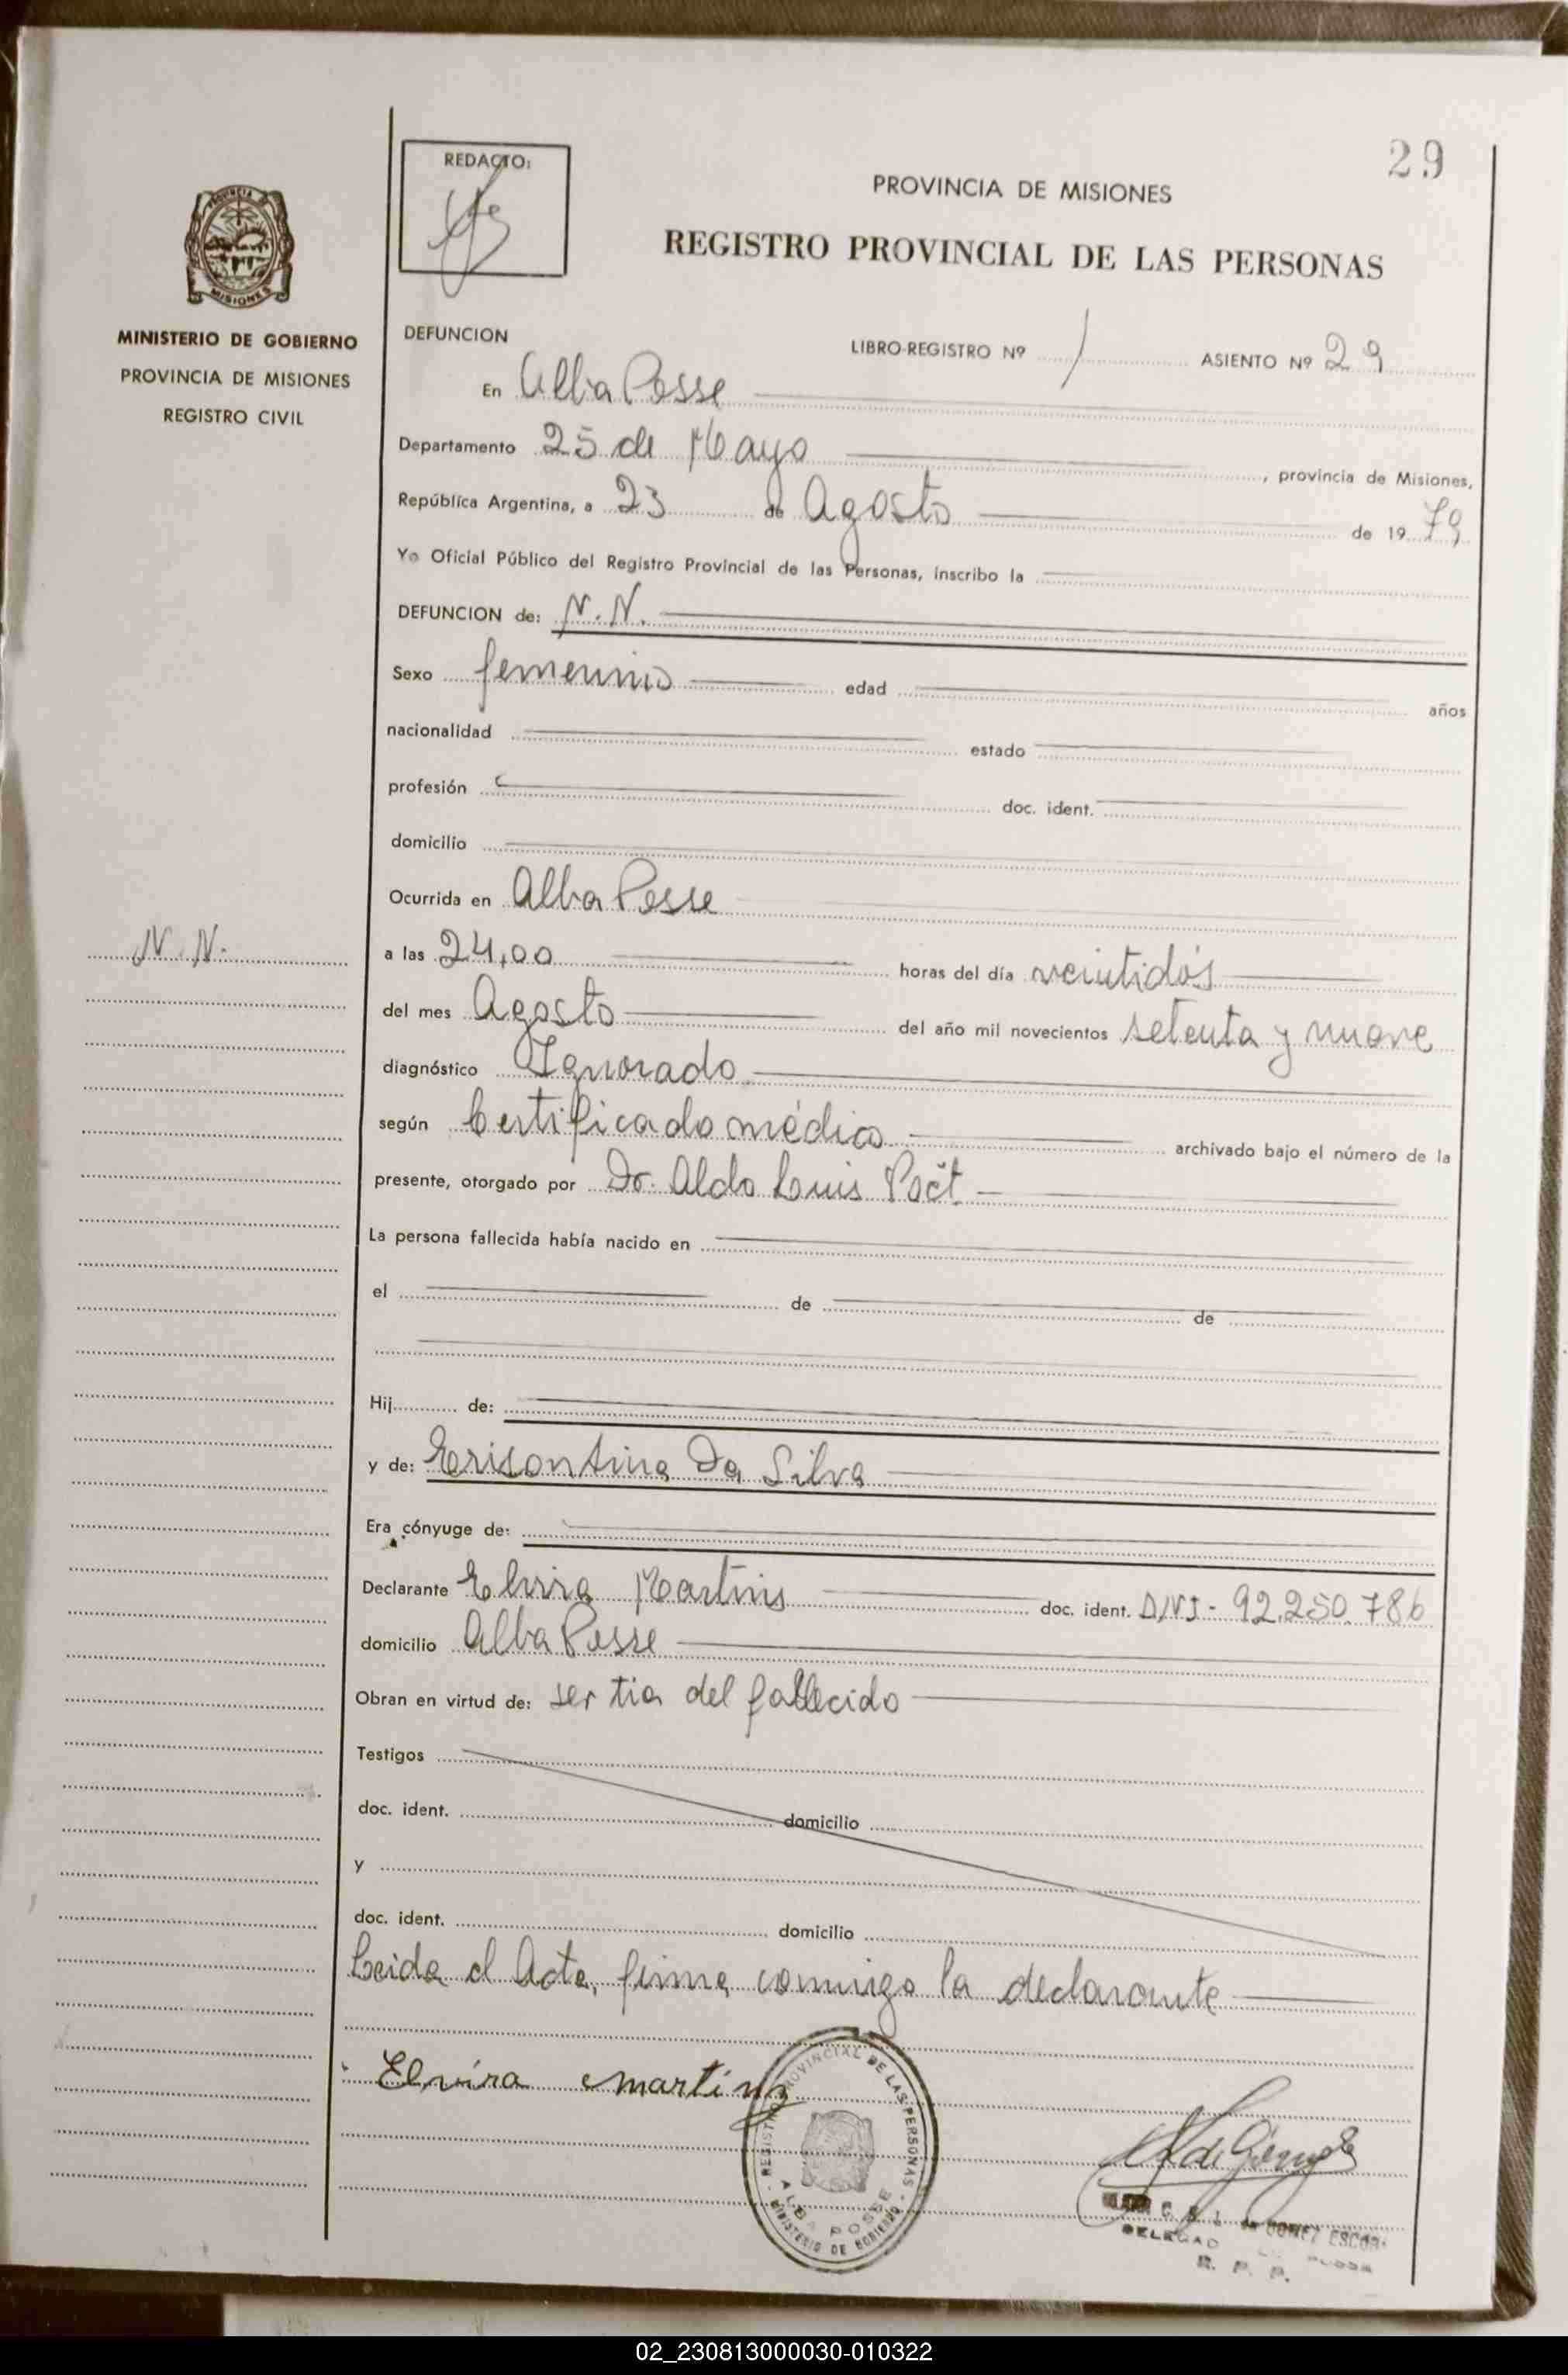 29
REDACTO:
PROVINCIA DE MISIONES
REGISTRO PROVINCIAL DE LAS PERSONAS
PROVINCIA DE MISIONES
MINISTERIO DE GOBIERNO
PROVINCIA DE MISIONES
REGISTRO CIVIL
DEFUNCION
LIBRO-REGISTRO Nº 1 ASIENTO Nº 29
En Alba Posse
Departamento 25 de Mayo, provincia de Misiones,
República Argentina, a 23 de Agosto de 1979
Yo Oficial Público del Registro Provincial de las Personas, inscribo la
DEFUNCION de: N.N.
Sexo femenino edad años
nacionalidad estado
profesión doc. ident.
domicilio
Ocurrida en Alba Posse
N.N.
a las 24,00 horas del día veintidós
del mes Agosto del año mil novecientos setenta y nueve
diagnóstico Ignorado
según Certificado médico archivado bajo el número de la
presente, otorgado por Dr. Aldo Luis
La persona fallecida había nacido en
el de de
Hij de:
y de: Da Silva
Era cónyuge de:
Declarante Elvira Martins doc. ident. DNI - 92.250.786
domicilio Alba Posse
Obran en virtud de: ser tia del fallecido
Testigos
doc. ident. domicilio
y
doc. ident. domicilio
Leida el Acta, firma conmigo la declarante
Elvira Martins
REGISTRO PROVINCIAL DE LAS PERSONAS
ALBA POSSE
MINISTERIO DE GOBIERNO
de GOMEZ
R. P. P.
02_230813000030-010322